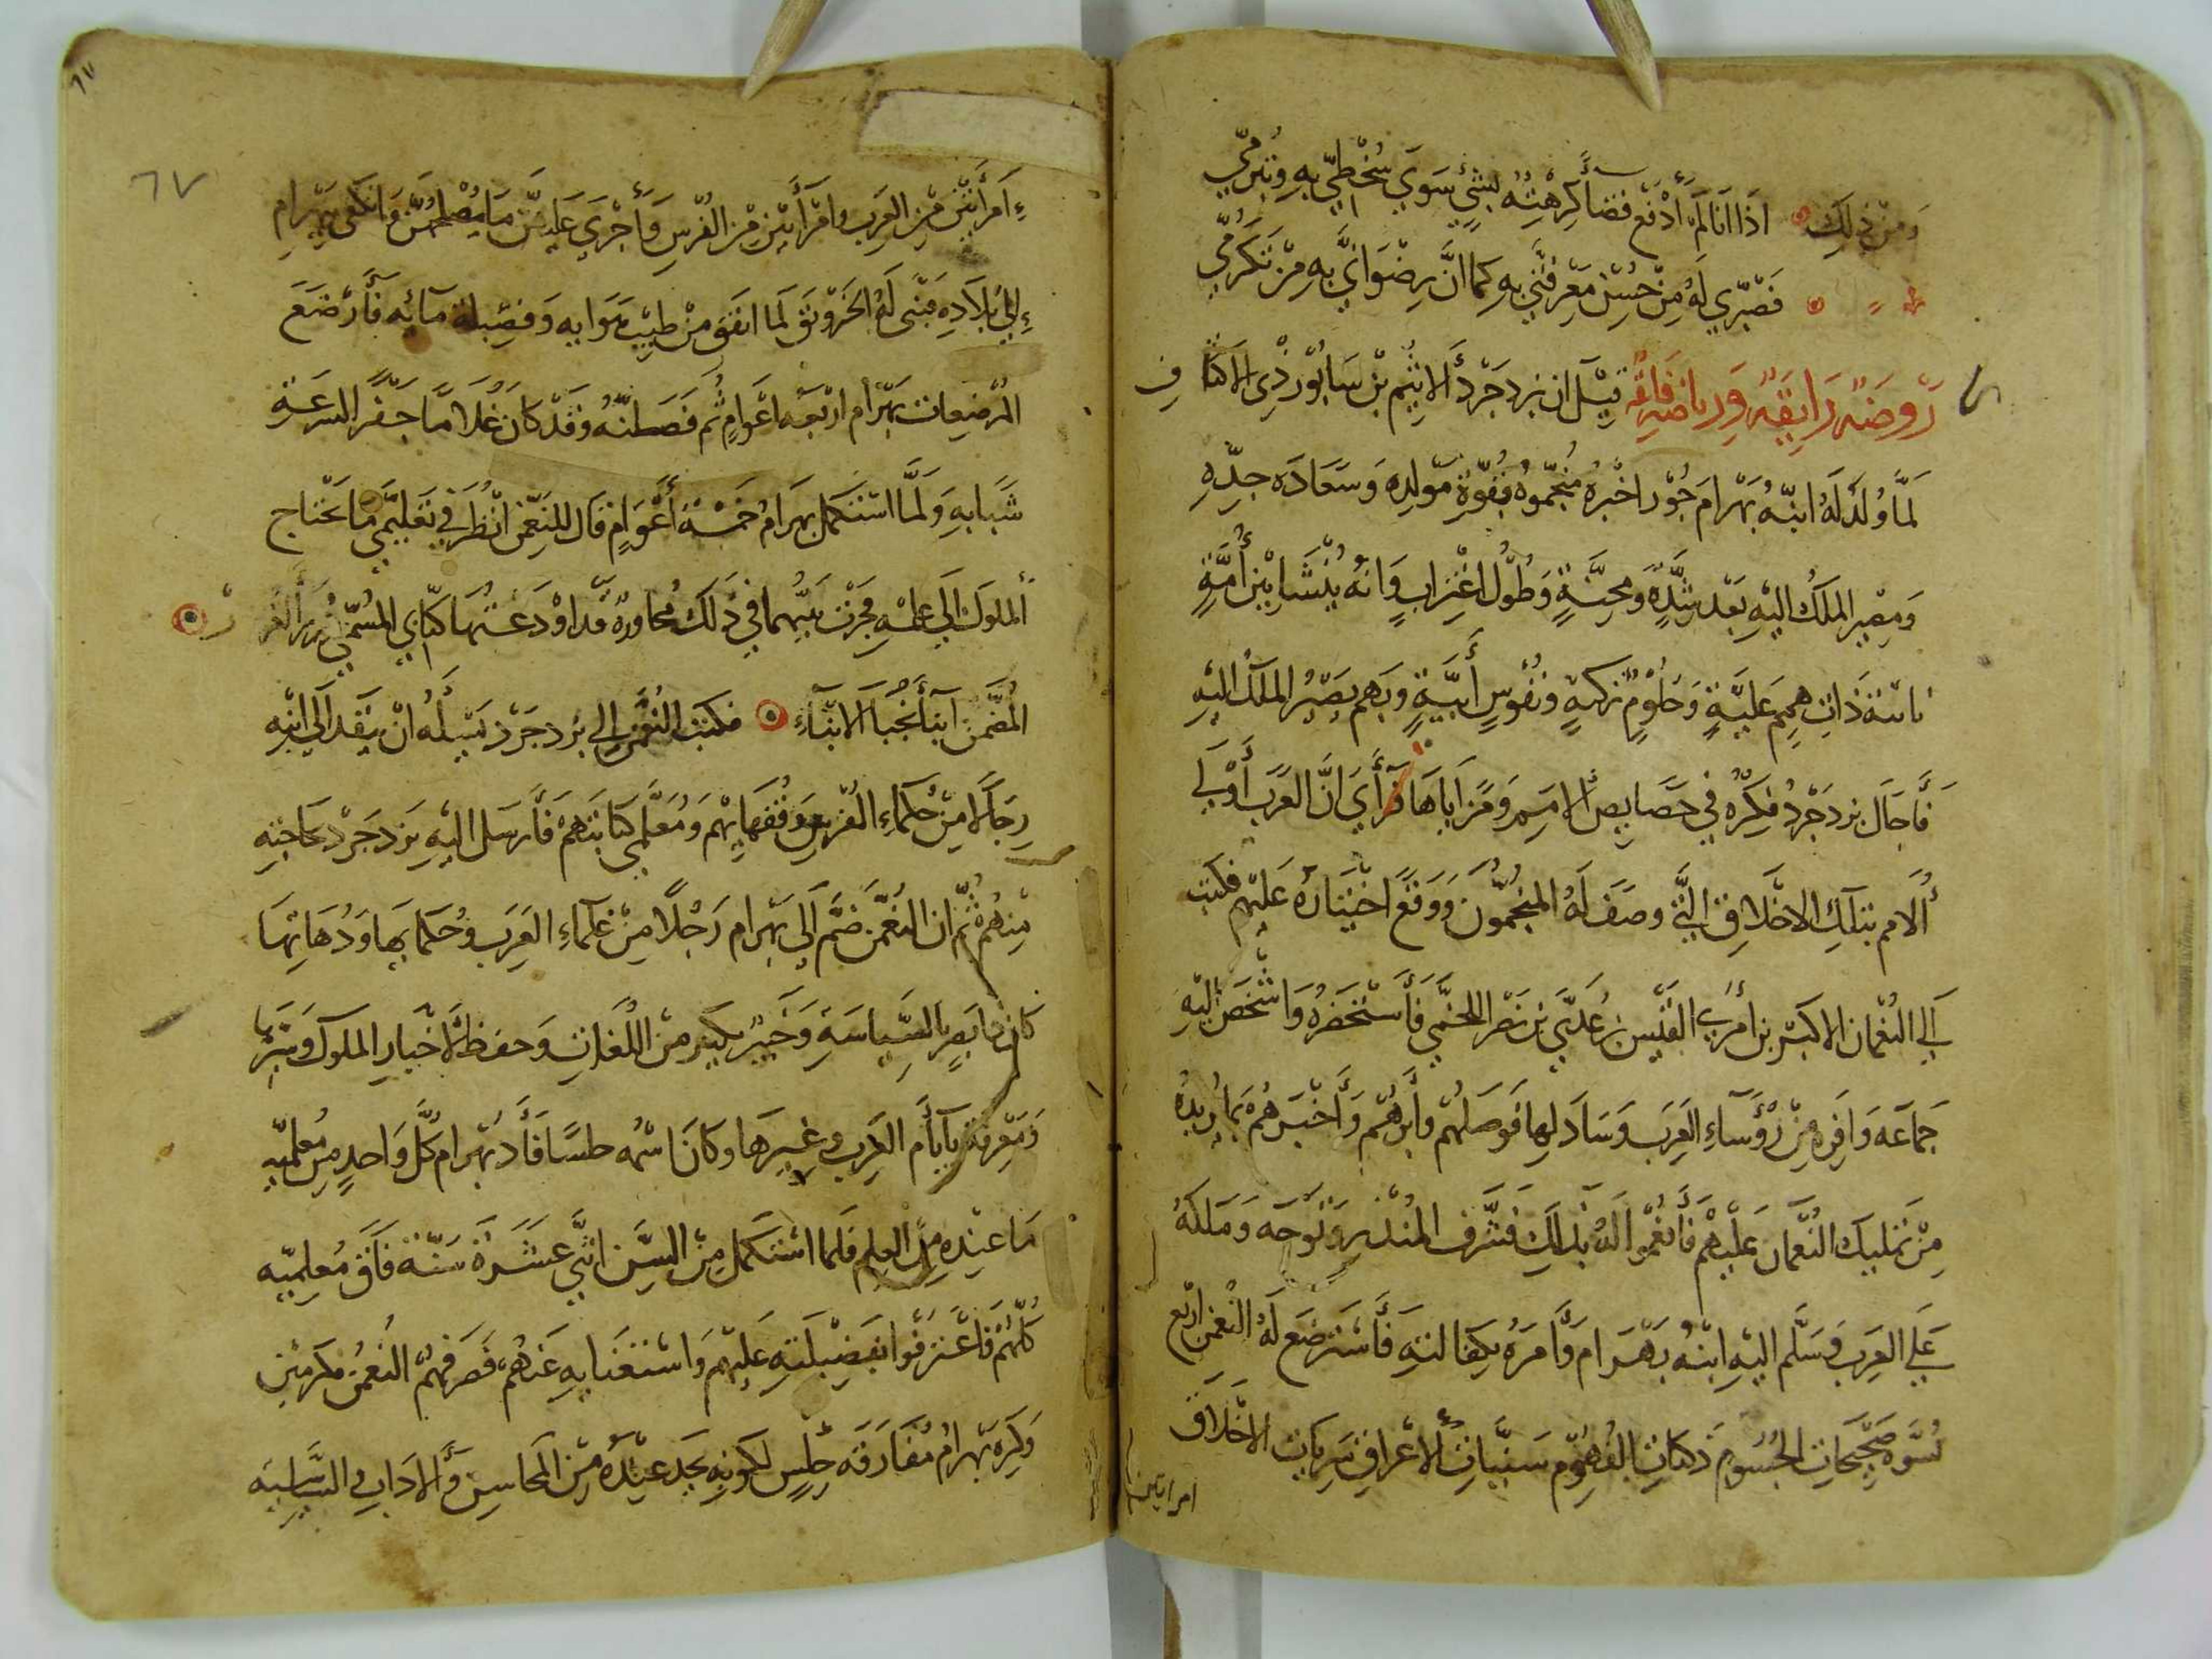 ومن ذلك اذا انا لم أدفع قضاً كرهته بشئ سوى سخطي به وتبرمي
فصبري له من حسن معرفتي به كما ان رضواني به من تكرمي
روضة رايقة ورياضة فايقة قيل ان يزدجرد الاثيم بن سابور ذي الاكتاف
لما ولد له ابنه بهرام جور اخبره منجموه بقوة مولده وسعادة جده
ومصير الملك اليه بعد شدة ومحنة وطول اغتراب وانه ينشا بين أمة
نائية ذات همم علية وحلوم زكية ونفوس أبية وبهم يصير الملك اليه
فأجال يزدجرد فكره في خصايص الامم ومزاياها فرأى ان العرب أولى
الامم بتلك الاخلاق التي وصف له المنجمون ووقع اختياره عليهم فكتب
الى النعمان الاكبر بن امرئ القيس بن عدي بن نصر اللخمي فأستحضره واشخص اليه
جماعة وافرة من رؤساء العرب وساداتها فوصلهم وأبرهم وأخبرهم بما يريده
من تمليك النعمان عليهم فأنعموا له بذلك فشرف المنذر وتوجه وملكه
على العرب وسلم اليه ابنه بهرام وأمره بكفالته فأسترضع له النعمن اربع
نسوة صحيحات الجسوم ذكيات الفهوم سنيات الاعراف سريات الاخلاق
امراتين
٦٧
٦٧
امرأتين من العرب وامرأتين من الفرس وأجرى عليهن ما يصلحهن وانكفى ببهرام
إلى بلاده فبنى له الخرونق لما اتفق من طيب هوايه وفضيلة مآئه فأرضع
المرضعات بهرام اربعة اعوام ثم فصطنه وقد كان غلاما جفر السرعة
شبابه ولما استكمل بهرام خمسة أعوام قال للنعمن انظر في تعليمي ما تحتاج
الملوك الى علمه فجرت بينهما في ذلك محاورة قد اودعتها كتابي المسمى بدرر الغرر
المضمن أنبأ نجبآ الابنآء فكتب النعمن إلى يزدجرد يسله ان ينفذ الى ابنه
رجالا من حكماء الفرس وفقهايهم ومعلمي كتابتهم فأرسل اليه يزدجرد بحاجته
منهم ثم ان النعمن ضم الى بهرام رجلا من علمآء العرب وحكمايها ودهاتها
كان بصير بالسياسة وخبير بكثير من اللغات وحفظ لاخبار الملوك وسيرها
ومعرفة بأيام العرب وغيرها وكان اسمه حلسا فأد بهرام كل واحد من معلميه
ما عنده من العلم فلما استكمل من السن اثنتي عشرة سنة فاق معلميه
كلهم فاعترفوا بفضيلته عليهم واستغنايه عنهم فصرفهم النعمن مكرمين
وكره بهرام مفارقة حلس لكونه يجد عنده من المحاسن والاداب السياسية